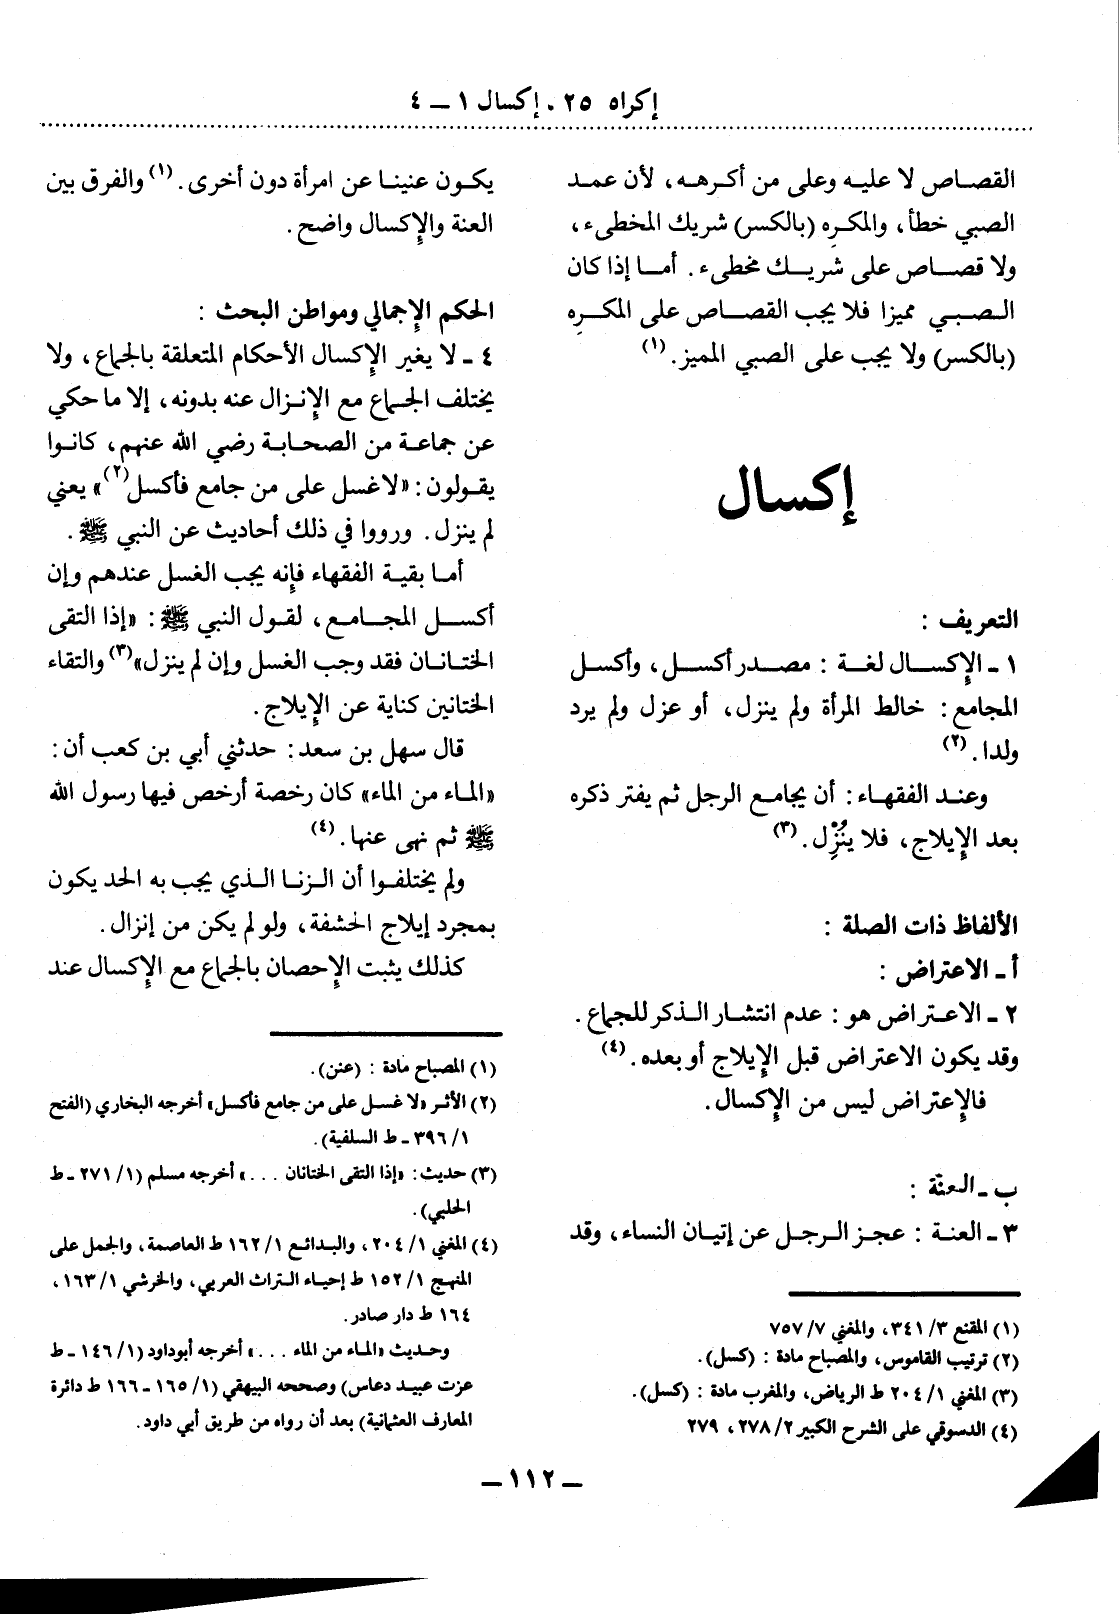 إكراه ٢٥ ، إكسال ١ ــ ٤
القصاص لا عليه وعلى من أكرهه، لأن عمد
الصبي خطأ، والمكرِه (بالكسر) شريك المخطىء،
ولا قصاص على شريك مخطىء. أما إذا كان
الصبي مميزا فلا يجب القصاص على المكرِه
(بالكسر) ولا يجب على الصبي المميز. (١)
إكسال
التعريف :
١ ـ الإكسال لغة : مصدر أكسل، وأكسل
المجامع : خالط المرأة ولم ينزل، أو عزل ولم يرد
ولدا. (٢)
وعند الفقهاء : أن يجامع الرجل ثم يفتر ذكره
بعد الإيلاج، فلا ينُزِل. (٣)
الألفاظ ذات الصلة :
أ ـ الاعتراض :
٢ ـ الاعتراض هو : عدم انتشار الذكر للجماع.
وقد يكون الاعتراض قبل الإيلاج أو بعده. (٤)
فالإعتراض ليس من الإكسال.
ب ـ العنّة :
٣ ـ العنة : عجز الرجل عن إتيان النساء، وقد
(١) المقنع ٣/ ٣٤١، والمغني ٧/ ٧٥٧
(٢) ترتيب القاموس، والمصباح مادة : (كسل).
(٣) المغني ١/ ٢٠٤ ط الرياض، والمغرب مادة : (كسل).
(٤) الدسوقي على الشرح الكبير ٢/ ٢٧٨، ٢٧٩
يكون عنينا عن امرأة دون أخرى. (١) والفرق بين
العنة والإكسال واضح.
الحكم الإجمالي ومواطن البحث :
٤ ـ لا يغير الإكسال الأحكام المتعلقة بالجماع، ولا
يختلف الجماع مع الإنزال عنه بدونه، إلا ما حكي
عن جماعة من الصحابة رضي الله عنهم، كانوا
يقولون : «لا غسل على من جامع فأكسل(٢)» يعني
لم ينزل. ورووا في ذلك أحاديث عن النبي ﷺ.
أما بقية الفقهاء فإنه يجب الغسل عندهم وإن
أكسل المجامع، لقول النبي ﷺ : «إذا التقى
الختانان فقد وجب الغسل وإن لم ينزل»(٣) والتقاء
الختانين كناية عن الإيلاج.
قال سهل بن سعد : حدثني أبي بن كعب أن :
«الماء من الماء» كان رخصة أرخص فيها رسول الله
ﷺ ثم نهى عنها. (٤)
ولم يختلفوا أن الزنا الذي يجب به الحد يكون
بمجرد إيلاج الحشفة، ولو لم يكن من إنزال.
كذلك يثبت الإحصان بالجماع مع الإكسال عند
(١) المصباح مادة : (عنن).
(٢) الأثر «لا غسل على من جامع فأكسل» أخرجه البخاري (الفتح
١/ ٣٩٦ ـ ط السلفية).
(٣) حديث : «إذا التقى الختانان ...» أخرجه مسلم (١/ ٢٧١ ـ ط
الحلبي).
(٤) المغني ١/ ٢٠٤، والبدائع ١/ ١٦٢ ط العاصمة، والجمل على
المنهج ١/ ١٥٢ ط إحياء التراث العربي، والخرشي ١/ ١٦٣،
١٦٤ ط دار صادر.
وحديث «الماء من الماء ...» أخرجه أبوداود (١/ ١٤٦ ـ ط
عزت عبيد دعاس) وصححه البيهقي (١/ ١٦٥ ـ ١٦٦ ط دائرة
المعارف العثمانية) بعد أن رواه من طريق أبي داود.
ــ ١١٢ ــ